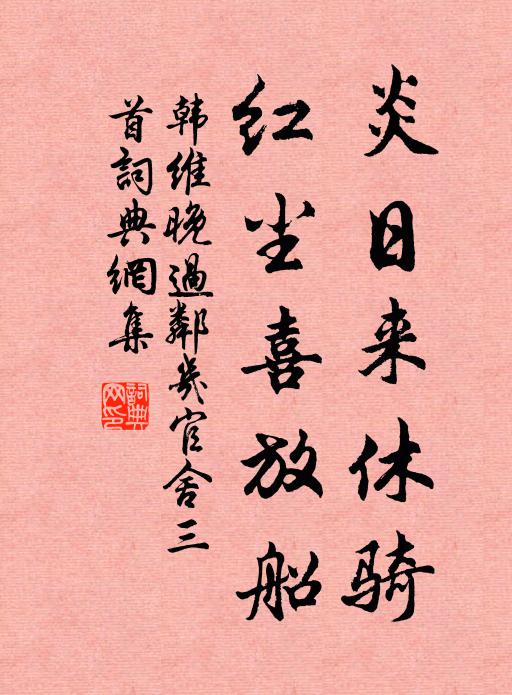 炎日来休骑
红尘喜放船
韩维晚過鄰幾官舍三
首詞典網集
詞典
网印